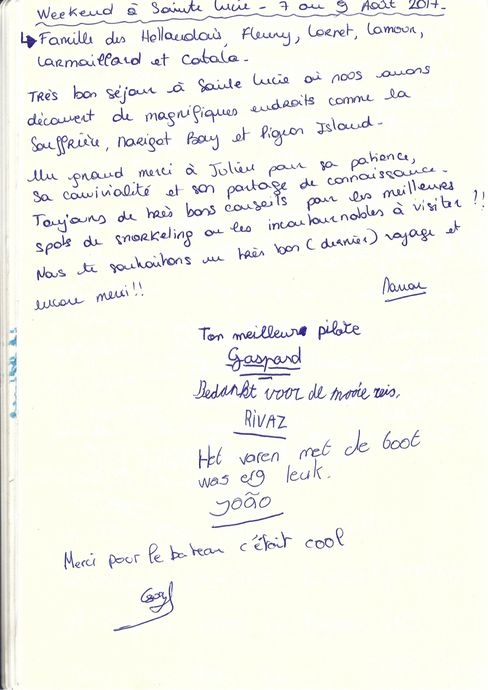 Weekend à Sainte Lucie - 7 au 9 Août 2017.
↳ Famille des Hollandais, Fleury, Lorret, Lamour,
Larmaillard et Catala.
Très bon séjour à Sainte Lucie où nous avons
découvert de magnifiques endroits comme la
Souffrière, Marigot Bay et Pigeon Island.
Un grand merci à Julien pour sa patience,
sa convivialité et son partage de connaissance.
Toujours de très bons conseils pour les meilleurs
spots de snorkeling ou les incontournables à visiter !!
Nous te souhaitons un très bon (dernier) voyage et
encore merci!!
Ton meilleur pilote
Gaspard
Bedankt voor de mooie reis.
RIVAZ
Het varen met de boot
was erg leuk.
JOÃO
Merci pour le bateau c'était cool